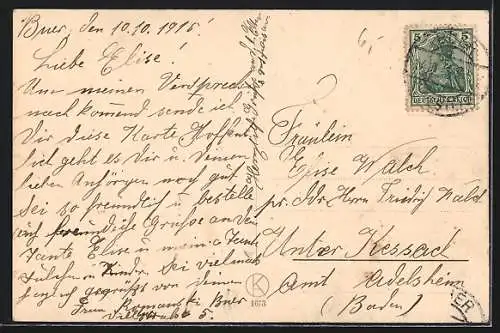 Buer, den 10.10.1915.
Liebe Elise!
Um meinen Versprech
nach komend sende ich
Dir diese Karte Hoffen
lich geht es Dir u. Deinen
lieben Anhörigen noch gut
Sei so freundlich u bestelle
auch freundliche Grüße an den
Tante Elise u meine Tante
u Kinder Sei vielmals
gegrüsst von deinen
Frau Romanski Buer
5.
6,-
5 5
DEUTSCHES REICH
Fräulein
Elise Walch
pr. Adr. Herrn Friedrich Walch
Unter Kessach
Amt Adelsheim
(Baden)
K
1673